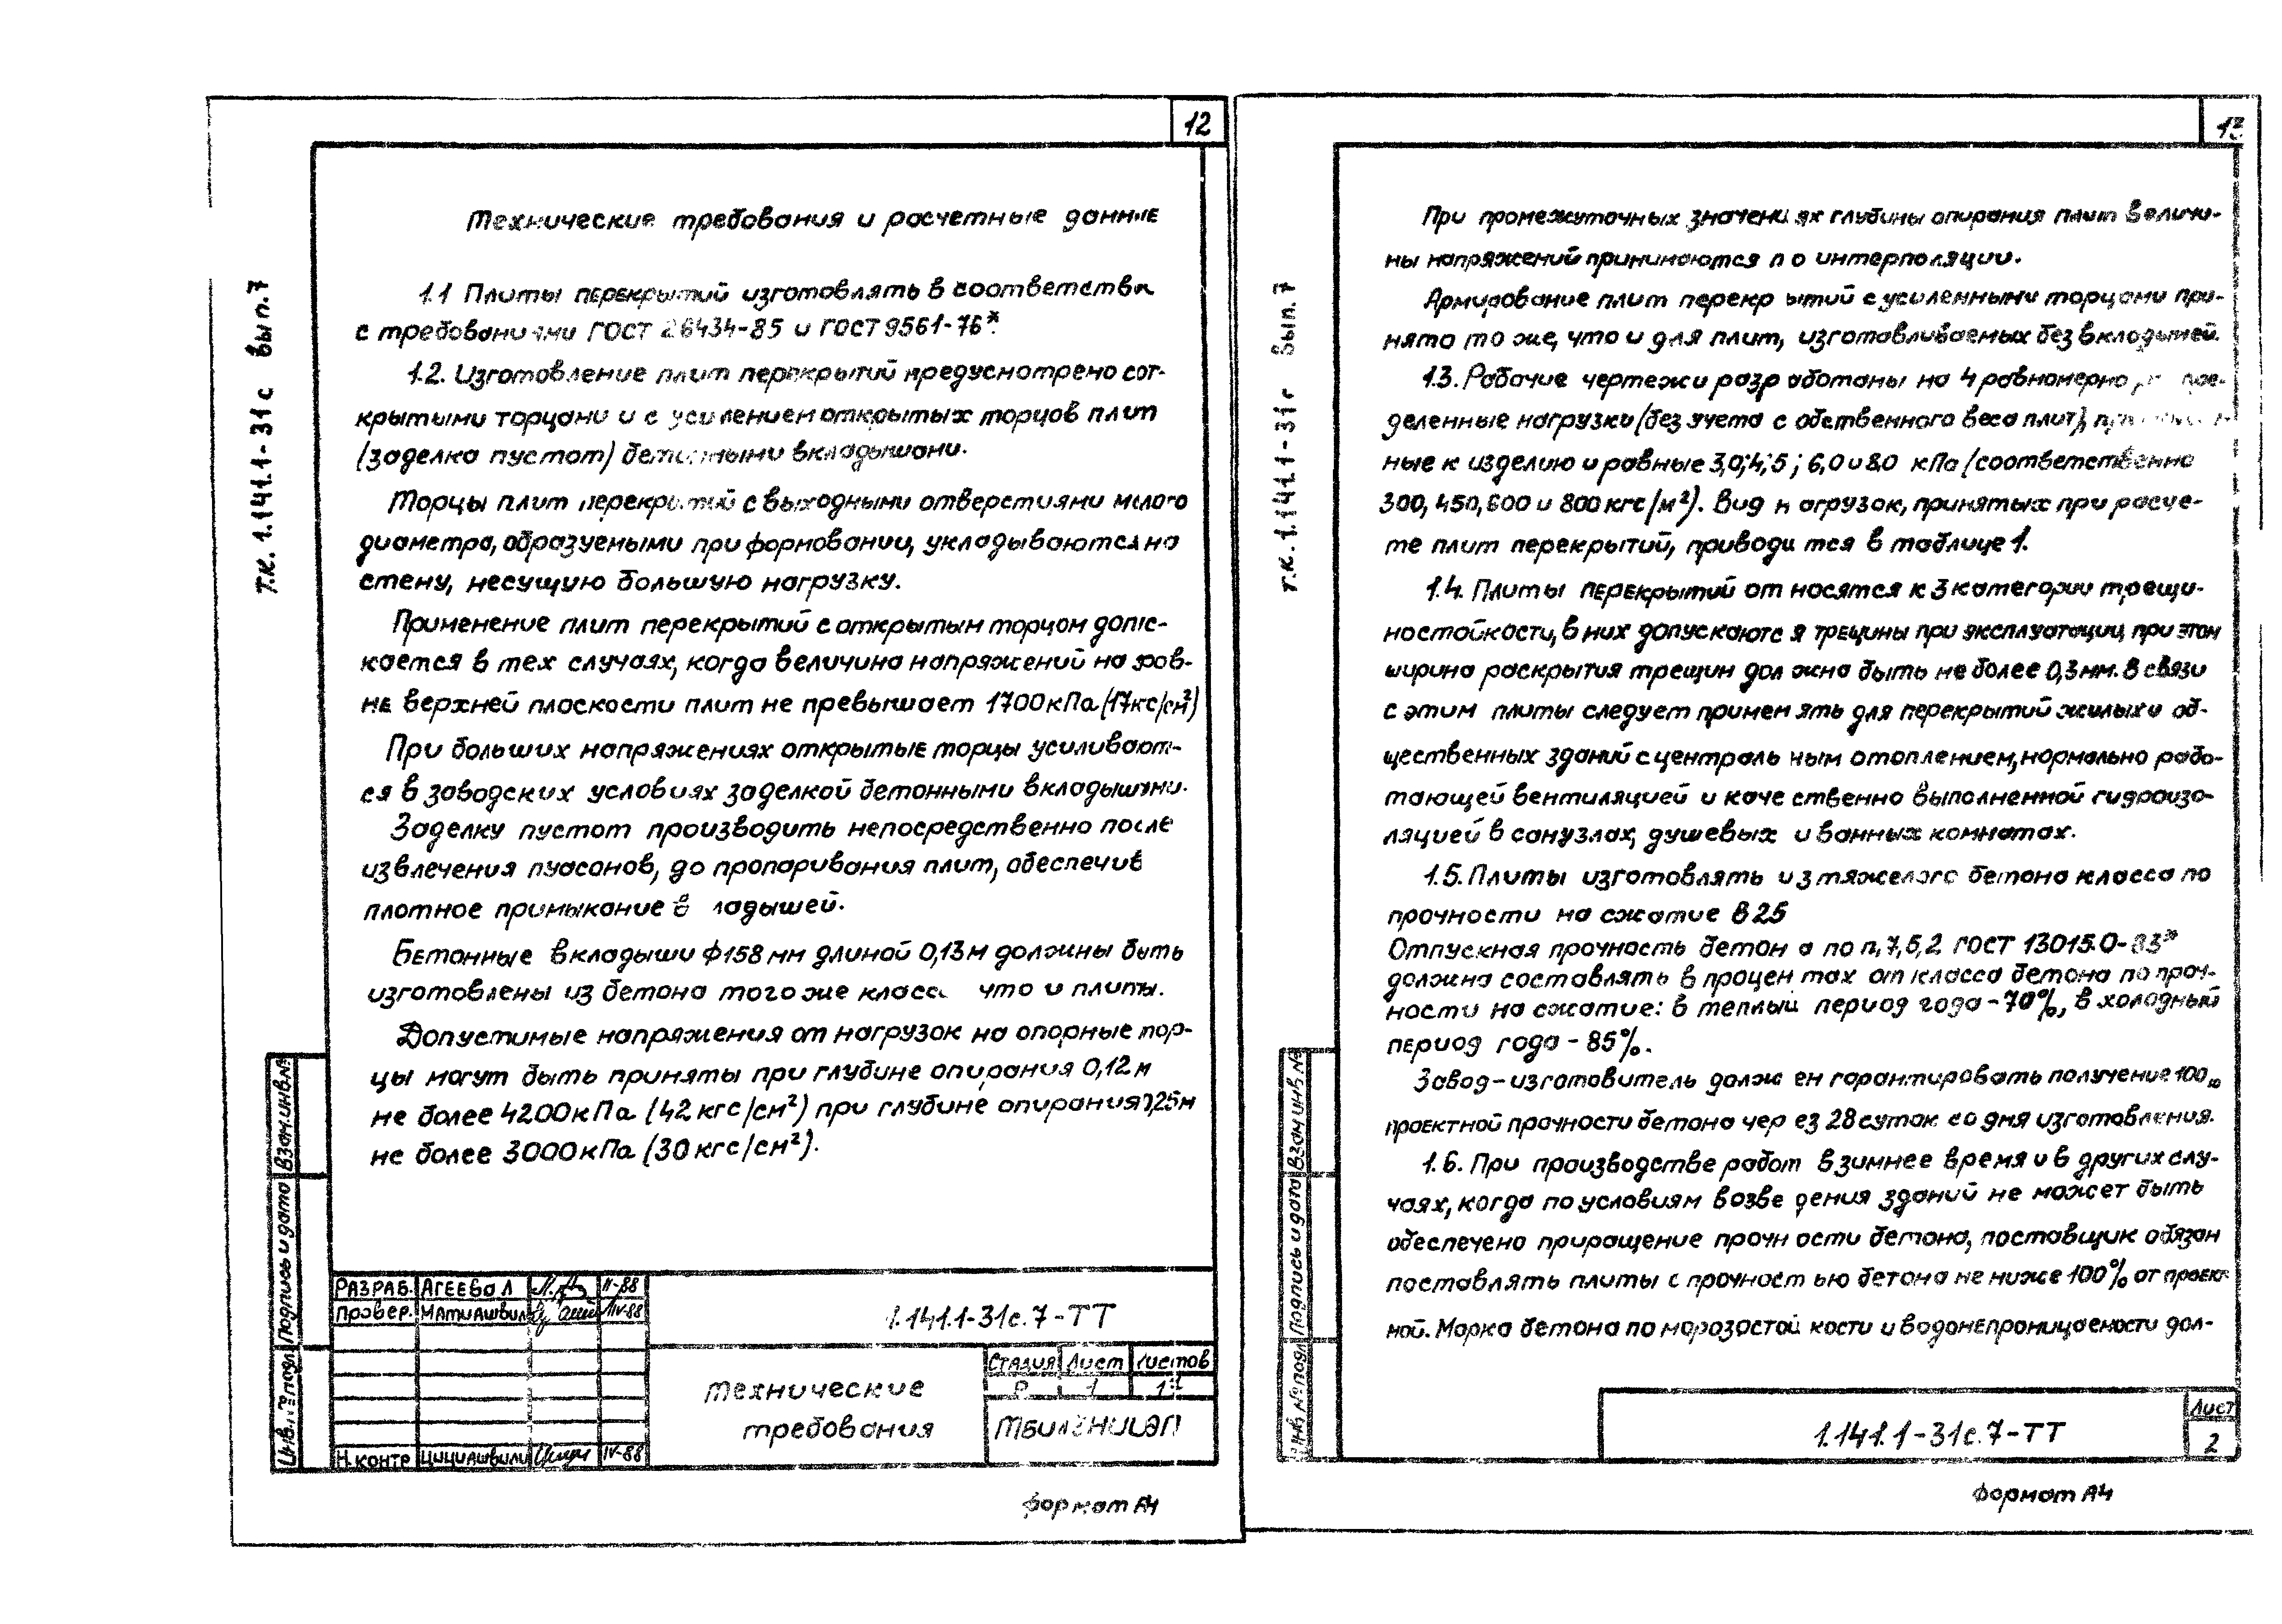 12
Т.К. 1.141.1-31с Вып.7
Технические требования и расчетные данные
1.1 Плиты перекрытий изготовлять в соответстви
с требованиями ГОСТ 26434-85 и ГОСТ 9561-76*.
1.2. Изготовление плит перекрытий предусмотрено с от-
крытыми торцами и с усилением открытых торцов плит
(заделка пустот) бетонными вкладышами.
Торцы плит перекрытий с выходными отверстиями малого
диаметра, образуемыми при формовании, укладываются на
стену, несущую большую нагрузку.
Применение плит перекрытий с открытым торцом допус-
кается в тех случаях, когда величина напряжений на уров-
не верхней плоскости плит не превышает 1700 кПа (17кгс/см²)
При больших напряжениях открытые торцы усиливают-
ся в заводских условиях заделкой бетонными вкладышами.
Заделку пустот производить непосредственно после
извлечения пуасонов, до пропаривания плит, обеспечив
плотное примыкание в ладышей.
Бетонные вкладыши ф158 мм длиной 0,13м должны быть
изготовлены из бетона того же класса что и плиты.
Допустимые напряжения от нагрузок на опорные тор-
цы могут быть приняты при глубине опирания 0,12 м
не более 4200 кПа (42 кгс/см²) при глубине опирания 0,25м
не более 3000 кПа (30 кгс/см²).
Взам.инв.№
Подпись и дата
Инв.№ подл
Разраб. Агеева Л II-88
Провер. Матиашвили IV-88
Н.контр Цициашвили IV-88
1.141.1-31с.7-ТТ
Технические
требования
Стадия Лист Листов
Р 1
ТбилЗНИИЭП
Формат А4
13
Т.К. 1.141.1-31с Вып.7
При промежуточных значениях глубины опирания плит величи-
ны напряжений принимаются по интерполяции.
Армирование плит перекрытий с усиленными торцами при-
нято то же, что и для плит, изготавливаемых без вкладышей.
1.3. Рабочие чертежи разработаны на 4 равномерно
деленные нагрузки (без учета собственного веса плит),
ные к изделию и равные 3,0; 4,5; 6,0 и 8,0 кПа (соответственно
300, 450, 600 и 800 кгс/м²). Вид нагрузок, принятых при расче-
те плит перекрытий, приводится в таблице 1.
1.4. Плиты перекрытий относятся к 3 категории трещи-
ностойкости, в них допускаются трещины при эксплуатации, при этом
ширина раскрытия трещин должна быть не более 0,3 мм. В связи
с этим плиты следует применять для перекрытий жилых и об-
щественных зданий с центральным отоплением, нормально рабо-
тающей вентиляцией и качественно выполненной гидроизо-
ляцией в санузлах, душевых и ванных комнатах.
1.5. Плиты изготовлять из тяжелого бетона класса по
прочности на сжатие В25
Отпускная прочность бетона по п.7,5,2 ГОСТ 13015.0-83*
должна составлять в процентах от класса бетона по проч-
ности на сжатие: в теплый период года - 70%, в холодный
период года - 85%.
Завод-изготовитель должен гарантировать получение 100%
проектной прочности бетона через 28 суток со дня изготовления.
1.6. При производстве работ в зимнее время и в других слу-
чаях, когда по условиям возведения зданий не может быть
обеспечено приращение прочности бетона, поставщик обязан
поставлять плиты с прочностью бетона не ниже 100% от проект-
ной. Марка бетона по морозостойкости и водонепроницаемости дол-
Взам инв №
Подпись и дата
Инв №подл
1.141.1-31с.7-ТТ
Лист
2
Формат А4